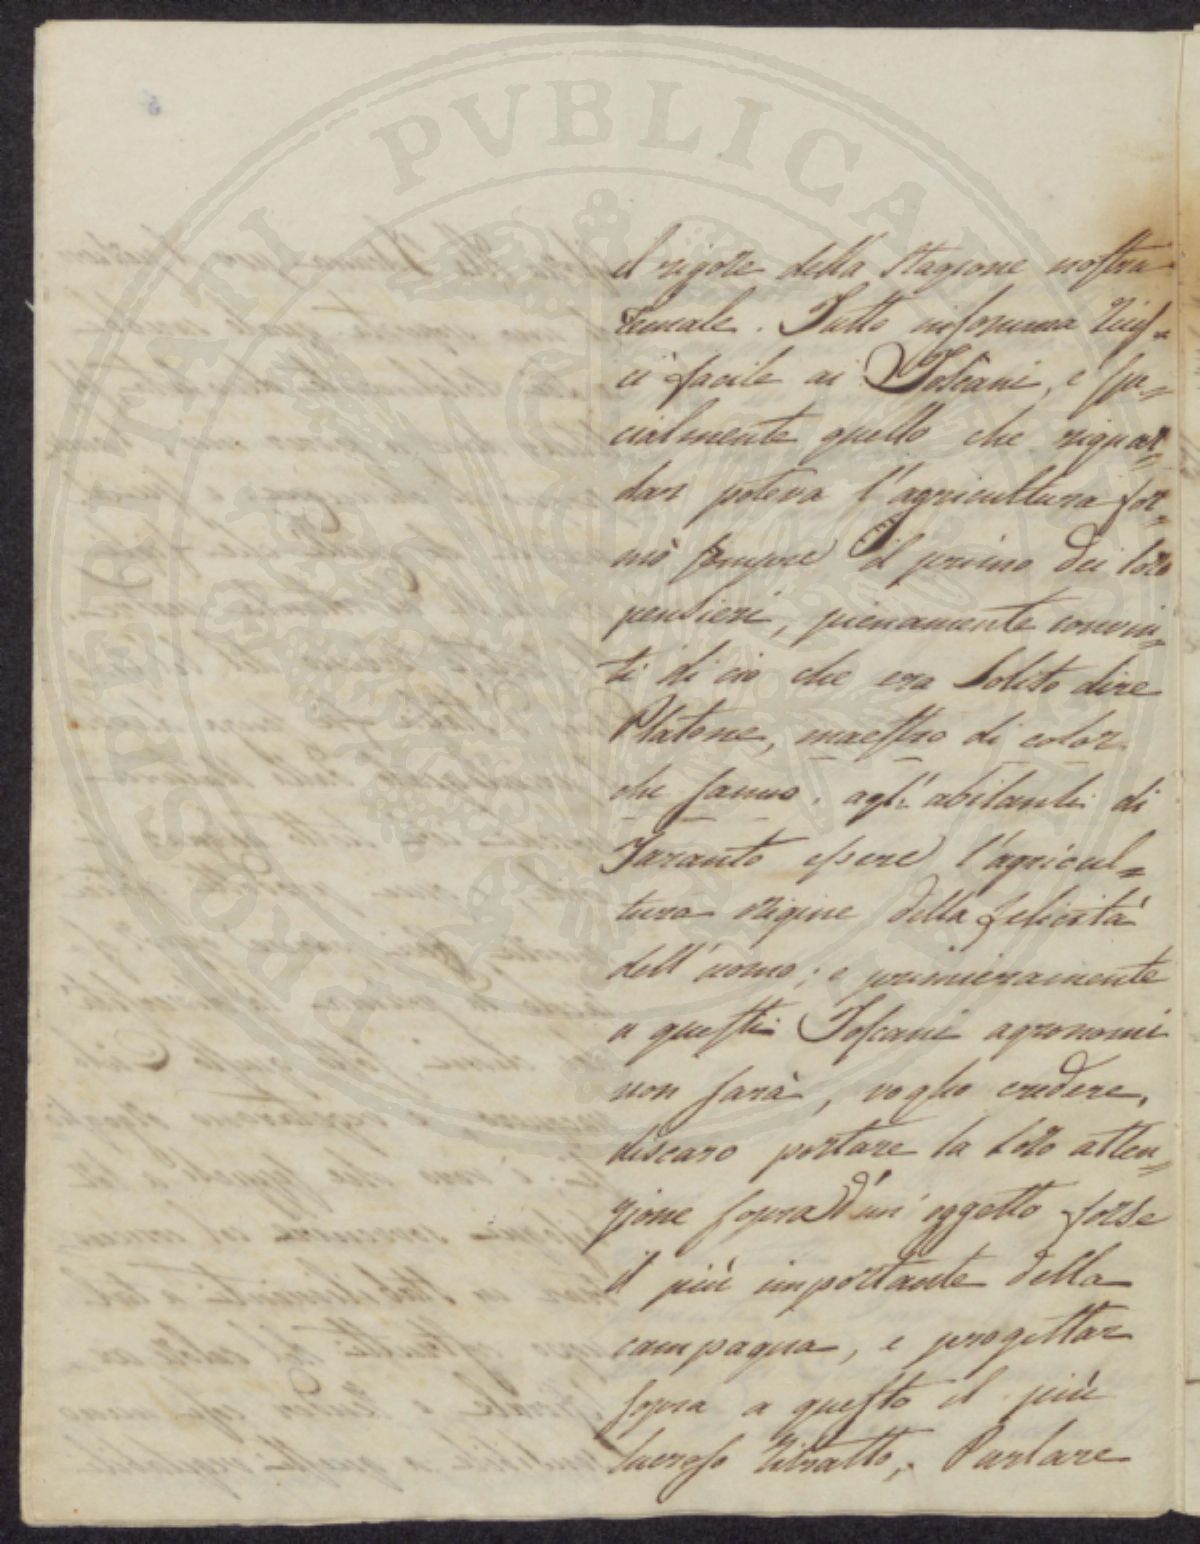 PROSPERITATI PVBLICAE
il rigore della stagione nostra
iemale. Tutto insomma riuſ=
cì facile ai Toscani, e ſpe=
cialmente quello che riguar=
dar poteva l'agricultura for=
mò ſempre il primo dei loro
pensieri, pienamente convin=
ti di cio che era solito dire
Platone, maeſtro di color
che ſanno, agl'abitanti di
Taranto eſsere l'agricul=
tura origine della felicità
dell'uomo; e primieramente
a queſti Toſcani agronomi
non ſarà, voglio credere,
discaro portare la loro atten=
zione ſopra d'un oggetto forse
il più importante della
campagna, e progettar
ſopra a queſto il più
lucroſo ritratto. Parlare